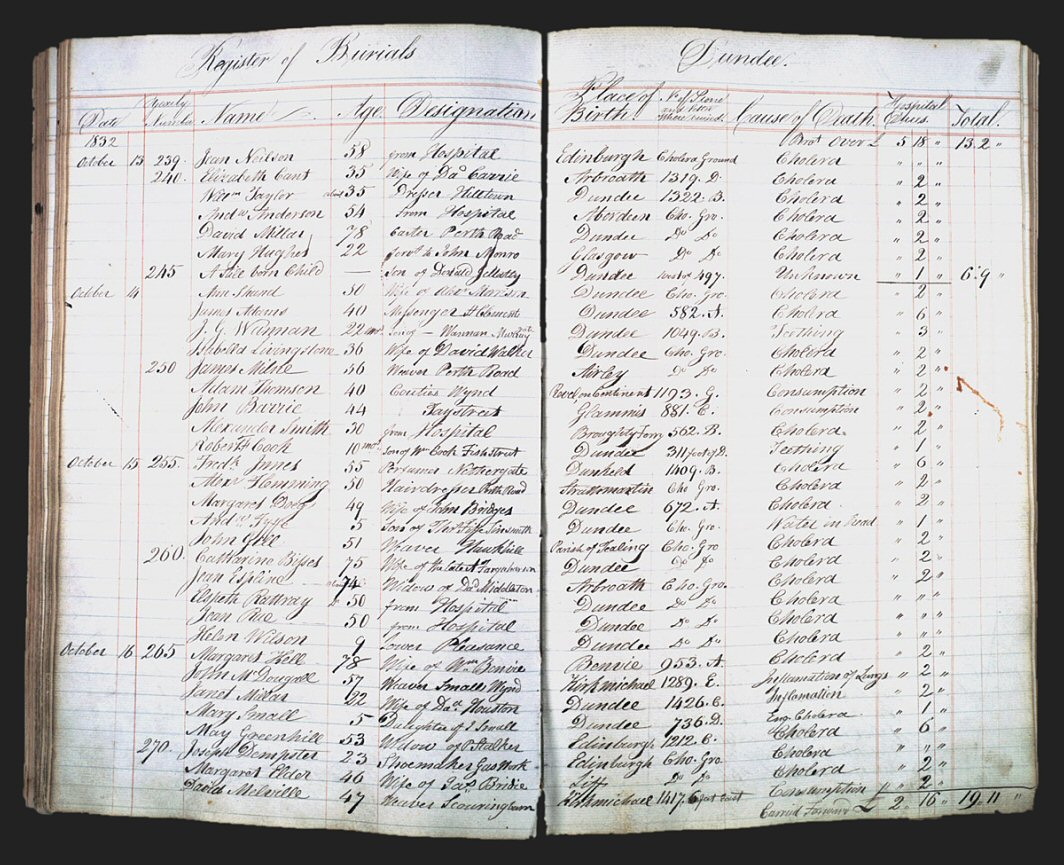 Register of Burials Dundee.
Date Yearly Number Name Age Designation Place of Birth Cause of Death. Hospital Dues. Total.
1832 Brot Over £ 5 18 " 13.2 "
October 13 239. Jean Neilson 58 from Hospital Edinburgh Cholera Ground Cholera " " "
240. Elizabeth Cant 55 Wife of Dad Carrie Arbroath 1319. D. Cholera " 2 "
Wm Taylor about 35 Dresser Hilltown Dundee 1322. B. Cholera " 2 "
Andw Anderson 54 from Hospital Cho. Gro. Cholera " 2 "
David Millar 78 Easter Perth Road Dundee Do Do Cholera " 2 "
Mary Hughes 22 Servt to John Monro Glasgow Do Do Cholera " 2 "
245 A Still born Child — Son of Dundee 497. Unknown " 1 " 6.9 "
October 14 Ann Shand 50 Wife of Alexr Morison Dundee Cho. Gro. Cholera " 2 "
James Adams 40 Messenger St Clements Dundee 582. A. Cholera " 6 "
J. G. Wannan 22 mos. Son of — Wannan Dundee 1049. B. Teething " 3 "
Isabella Livingstone 36 Wife of David Walker Dundee Cho. Gro. Cholera " 2 "
250 James Milne 56 Weaver Perth Road Airley Do Do Cholera " 2 "
Adam Thomson 40 Couties Wynd on Continent 1193. G. Consumption " 2 "
John Barrie 44 Tay Street Glammis 881. E. Consumption " 2 "
Alexander Smith 50 from Hospital Broughty Ferry 562. B. Cholera " 2 "
Robert Cook 10 mos. Son of Wm Cook Fish Street Dundee 311 foot of D. Teething " 1 "
October 15 255. Fredk Innes 55 Perfumer Nethergate Dunkeld 1409. B. Cholera " 6 "
Alexr Flemming 50 Hairdresser Perth Road Strathmartin Cho Gro. Cholera " 2 "
Margaret Doig 49 Wife of John Bridges Dundee 672. A. Cholera " 2 "
Andw Fyfe 5 Son of Thos Fife Tinsmith Dundee Cho. Gro. Water in Head " " "
John Gell 51 Weaver Hawkhill Parish of Tealing Cho. Gro Cholera " 2 "
260. Catharine Bisses 75 Wife of the late A Farquharson Dundee Do Do Cholera " 2 "
Jean Espline about 74 Widow of Dad Middleton Arbroath Cho. Gro. Cholera " 2 "
Elspeth Rattray Do 50 from Hospital Dundee Do Do Cholera " " "
Jean Rae 50 from Hospital Dundee Do Do Cholera " " "
Helen Wilson 9 Lower Pleasance Dundee Do Do Cholera " " "
October 16 265 Margaret Hell 78 Wife of Wm Benvie Bennie 953. A. Cholera " 2 "
John McDougall 57 Weaver Small Wynd Kirkmichael 1289. E. Inflamation of Lungs " 2 "
Janet Milas 22 Wife of Dad Houston Dundee 1426. C. Inflamation " 2 "
Mary Small 5 Daughter of J. Small Dundee 736. D. Eng. Cholera " 1 "
May Greenhill 53 Widow of P. Stalker Edinburgh 1212. C. Cholera " 6 "
270. Joseph Dempster 23 Shoemaker Gas Work Edinburgh Cho. Gro. Cholera " " "
Margaret Elder 46 Wife of Jas Bridie Liff Do Do Cholera " 2 "
David Melville 47 Weaver Scouringburn Kirkmichael 1417. 6 feet East Consumption " 2 "
Carried Forward £ 2 " 16 " 19.11 "